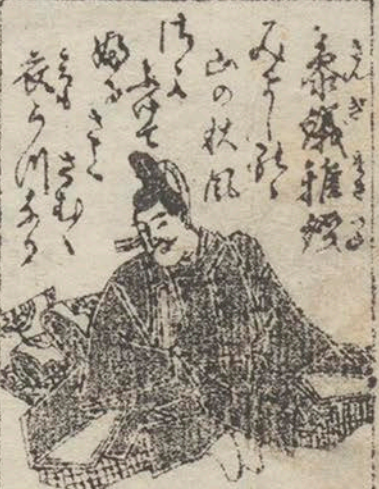 さんぎまさつね
參議雅經
みよし野の
山の秋風
さよ
ふけて
婦るさと
さむく
衣うつなり